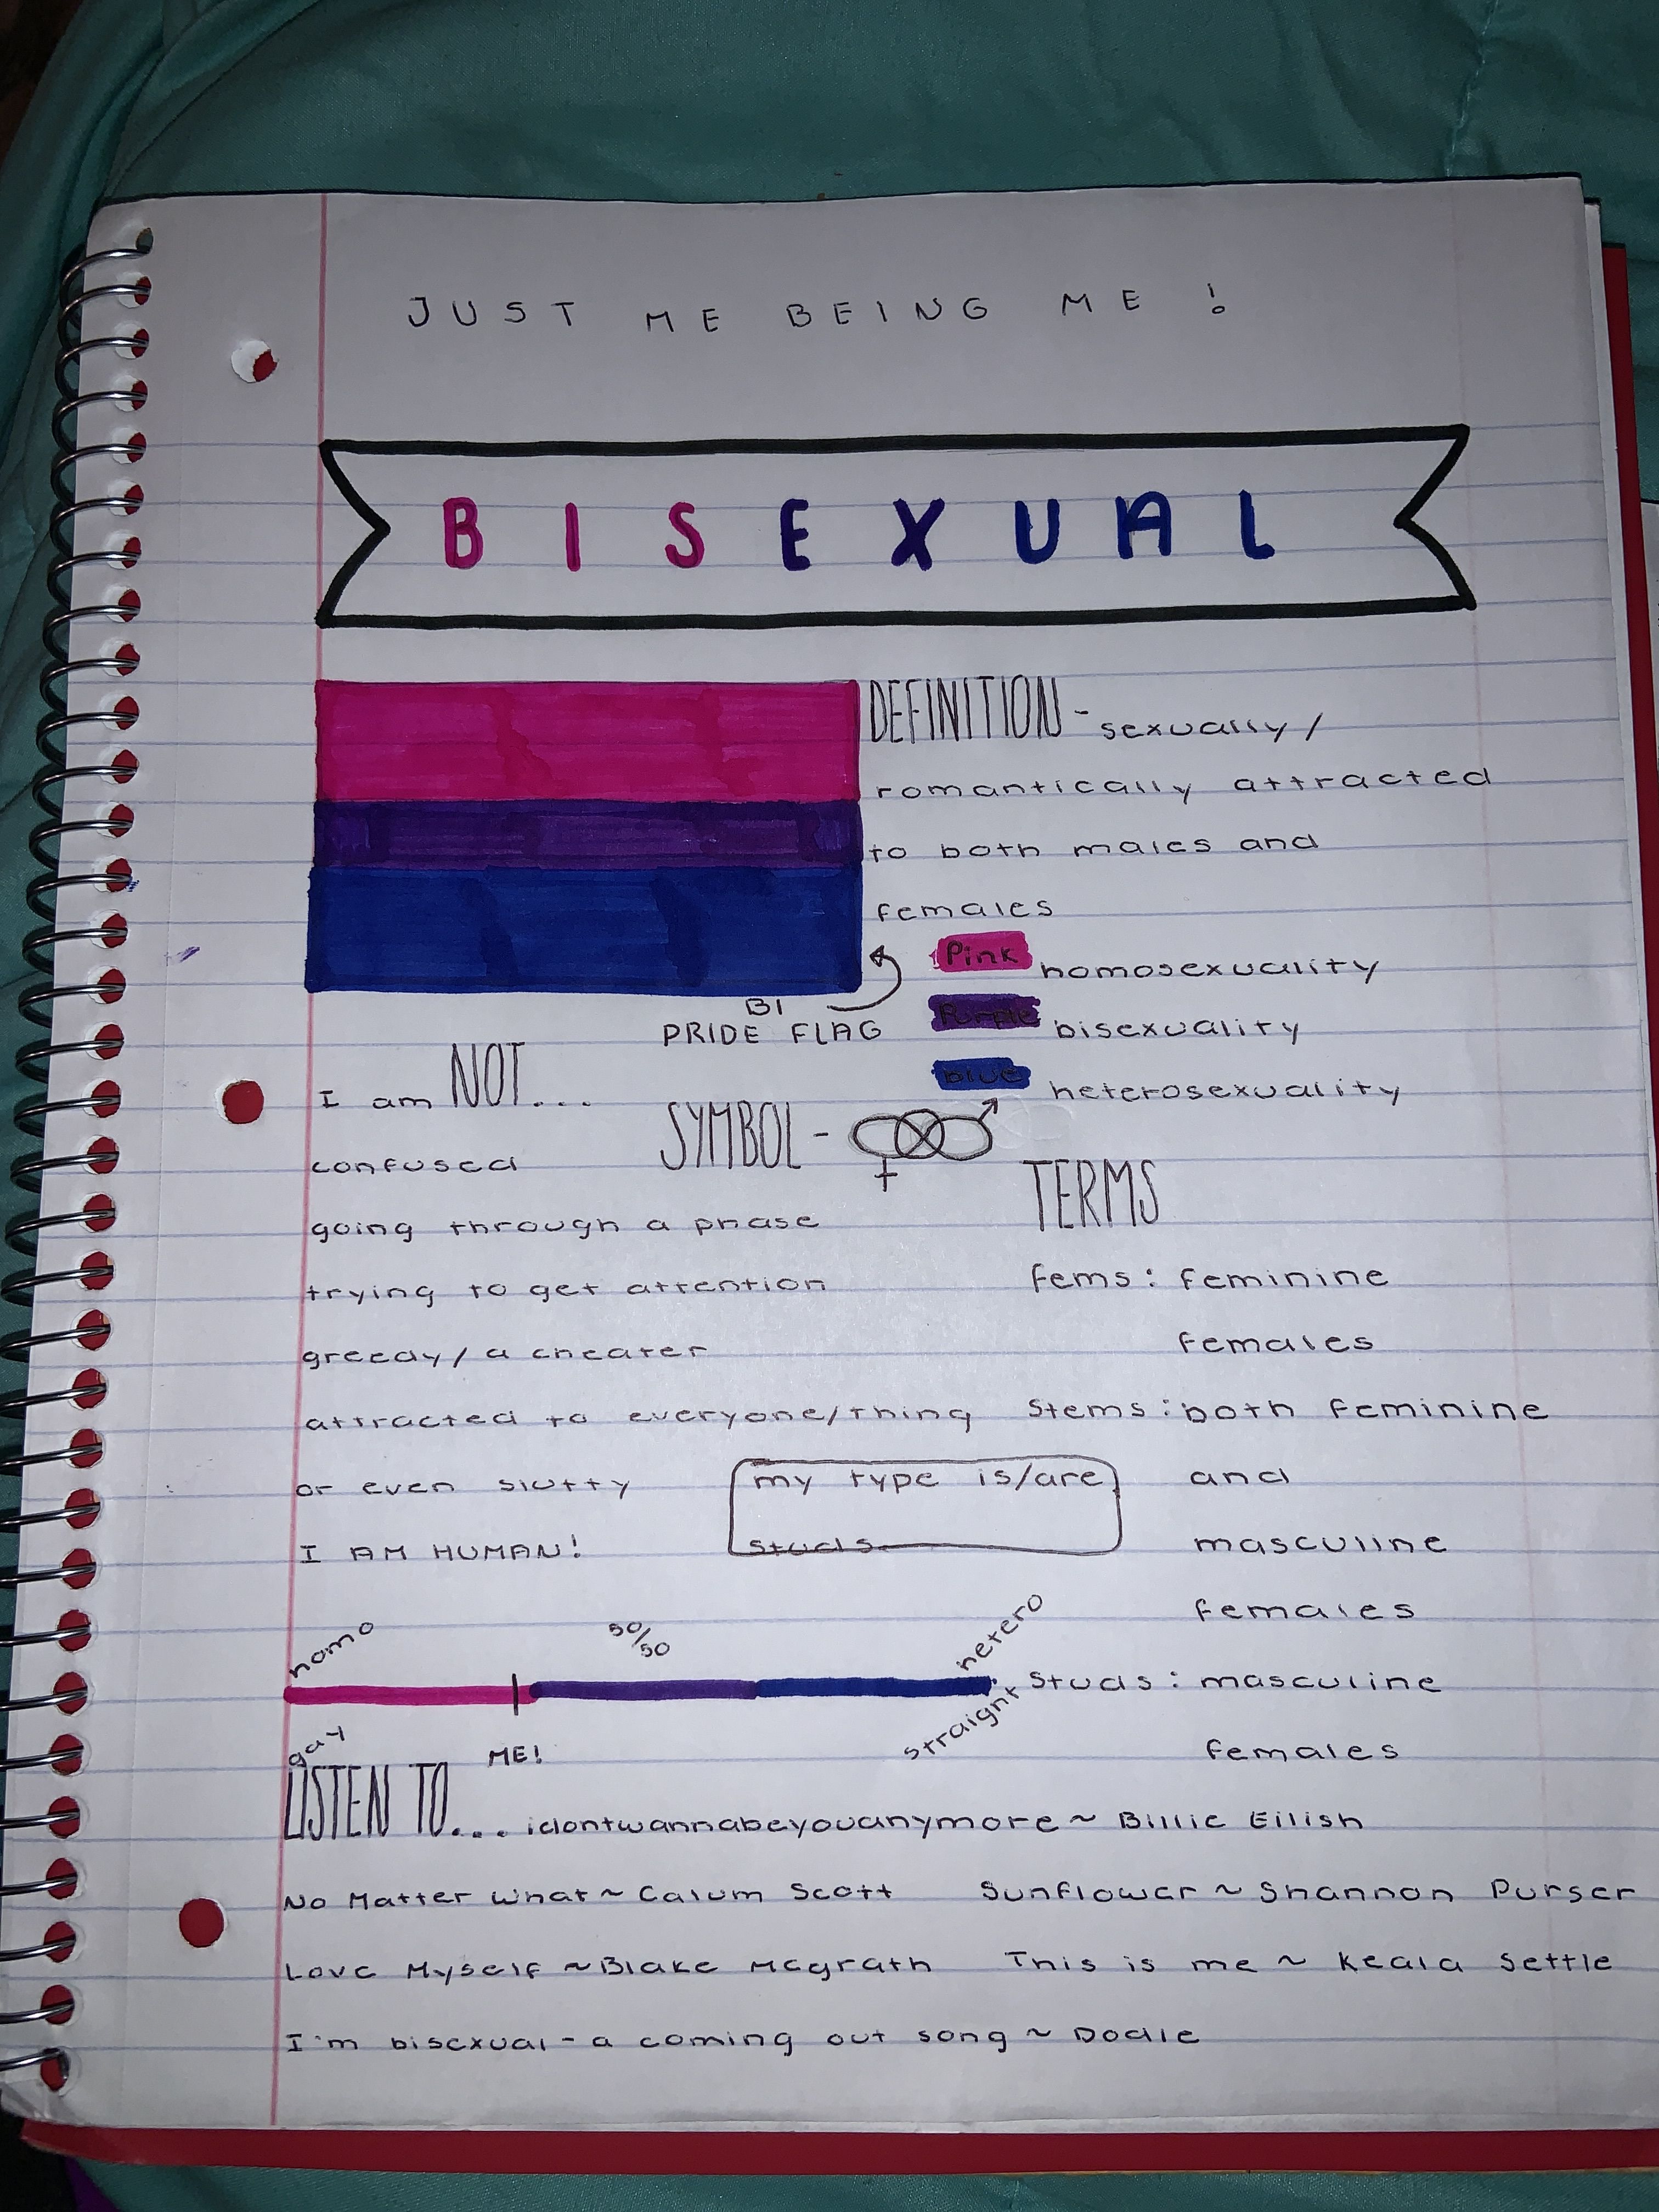 JUST ME BEING ME !
BISEXUAL
DEFINITION - sexually/
romantically attracted
to both males and
females
Pink homosexuality
Purple bisexuality
blue heterosexuality
BI
PRIDE FLAG
I am NOT...
confused
going through a phase
trying to get attention
greedy/a cheater
attracted to everyone/thing
or even slutty
I AM HUMAN!
SYMBOL -
TERMS
fems: feminine
females
Stems: both feminine
and
masculine
females
Studs: masculine
females
my type is/are
studs
homo
50/50
hetero
gay
ME!
straight
LISTEN TO... idontwannabeyouanymore ~ Billie Eilish
No Matter What ~ Calum Scott Sunflower ~ Shannon Purser
Love Myself ~ Blake McGrath This is me ~ Keala Settle
I'm bisexual - a coming out song ~ Dodie